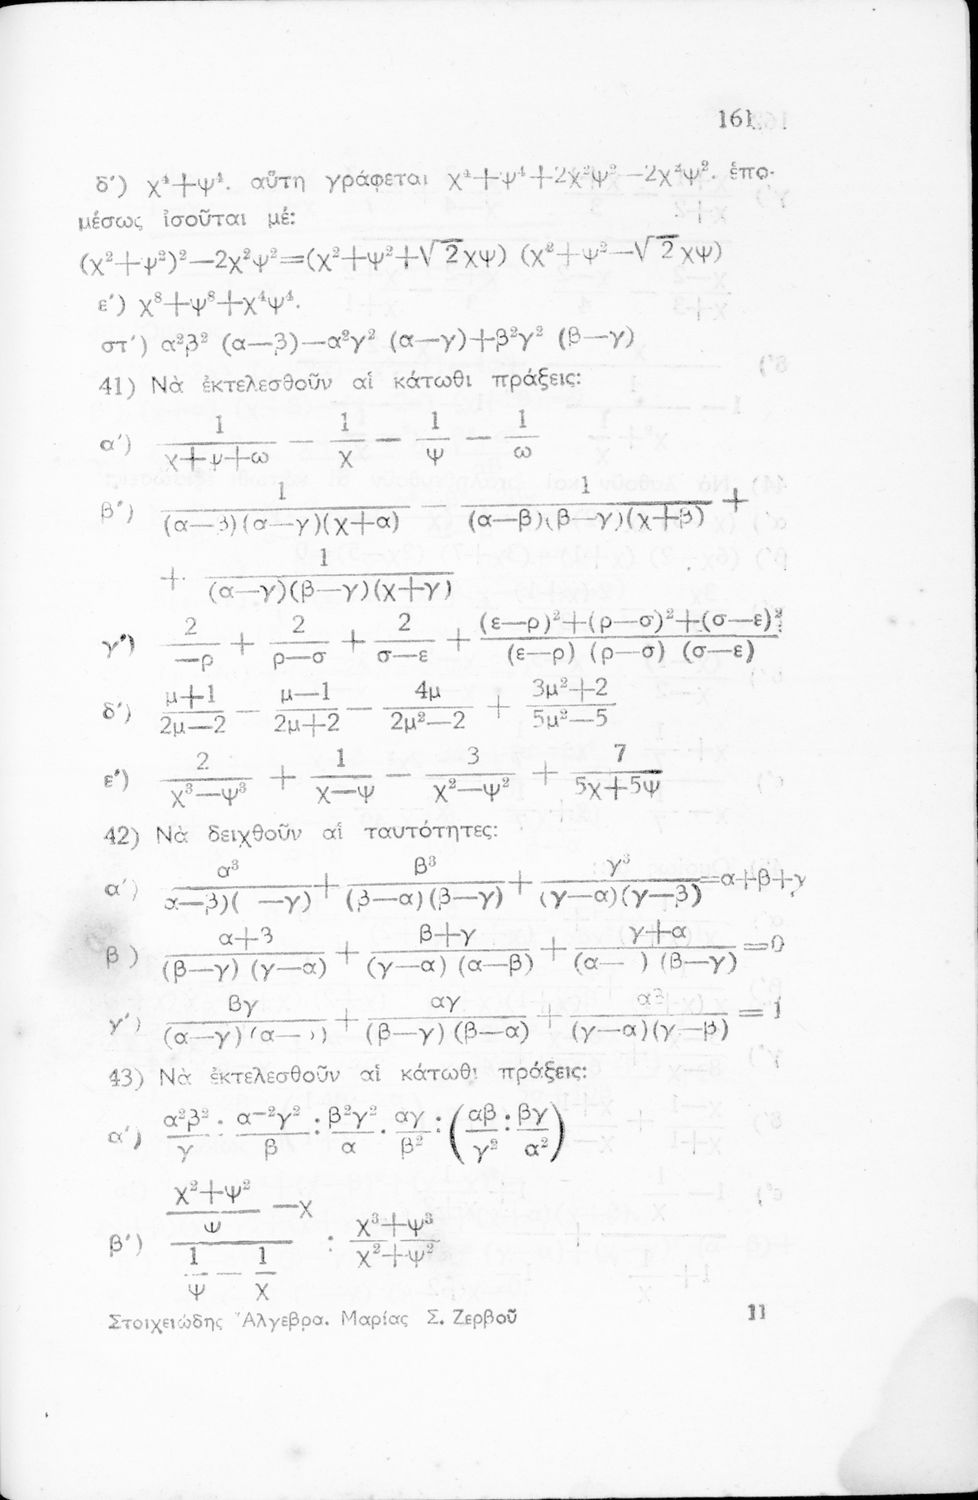 161
δ′) χ⁴+ψ⁴. αὕτη γράφεται χ⁴+ψ⁴+2χ²ψ²—2χ²ψ². ἑπο-
μέσως ἰσοῦται μέ:
(χ²+ψ²)²—2χ²ψ²=(χ²+ψ²+√2χψ) (χ²+ψ²—√2χψ)
ε′) χ⁸+ψ⁸+χ⁴ψ⁴.
στ′) α²β² (α—β)—α²γ² (α—γ)+β²γ² (β—γ)
41) Νὰ ἐκτελεσθοῦν αἱ κάτωθι πράξεις:
α′) 1/(χ+ψ+ω) — 1/χ — 1/ψ — 1/ω
β′) 1/((α—β)(α—γ)(χ+α)) 1/((α—β)(β—γ)(χ+β)) +
+ 1/((α—γ)(β—γ)(χ+γ))
γ′) 2/(—ρ) + 2/(ρ—σ) + 2/(σ—ε) + ((ε—ρ)²+(ρ—σ)²+(σ—ε)²)/((ε—ρ) (ρ—σ) (σ—ε))
δ′) (μ+1)/(2μ—2) — (μ—1)/(2μ+2) — 4μ/(2μ²—2) + (3μ²+2)/(5μ²—5)
ε′) 2/(χ³—ψ³) + 1/(χ—ψ) — 3/(χ²—ψ²) + 7/(5χ+5ψ)
42) Νὰ δειχθοῦν αἱ ταυτότητες:
α′) α³/(α—β)( —γ) + β³/((β—α)(β—γ)) + γ³/((γ—α)(γ—β)) =α+β+γ
β ) (α+β)/((β—γ) (γ—α)) + (β+γ)/((γ—α) (α—β)) + (γ+α)/((α— ) (β—γ)) =0
γ′) βγ/((α—γ)(α— )) + αγ/((β—γ)(β—α)) + αβ/((γ—α)(γ—β)) = 1
43) Νὰ ἐκτελεσθοῦν αἱ κάτωθι πράξεις:
α′) α²β²/γ . α⁻²γ²/β : β²γ²/α . αγ/β² : (αβ/γ² : βγ/α²)
β′) ((χ²+ψ²)/ψ —χ)/(1/ψ — 1/χ) : (χ³+ψ³)/(χ²+ψ²)
Στοιχειώδης Ἄλγεβρα. Μαρίας Σ. Ζερβοῦ 11